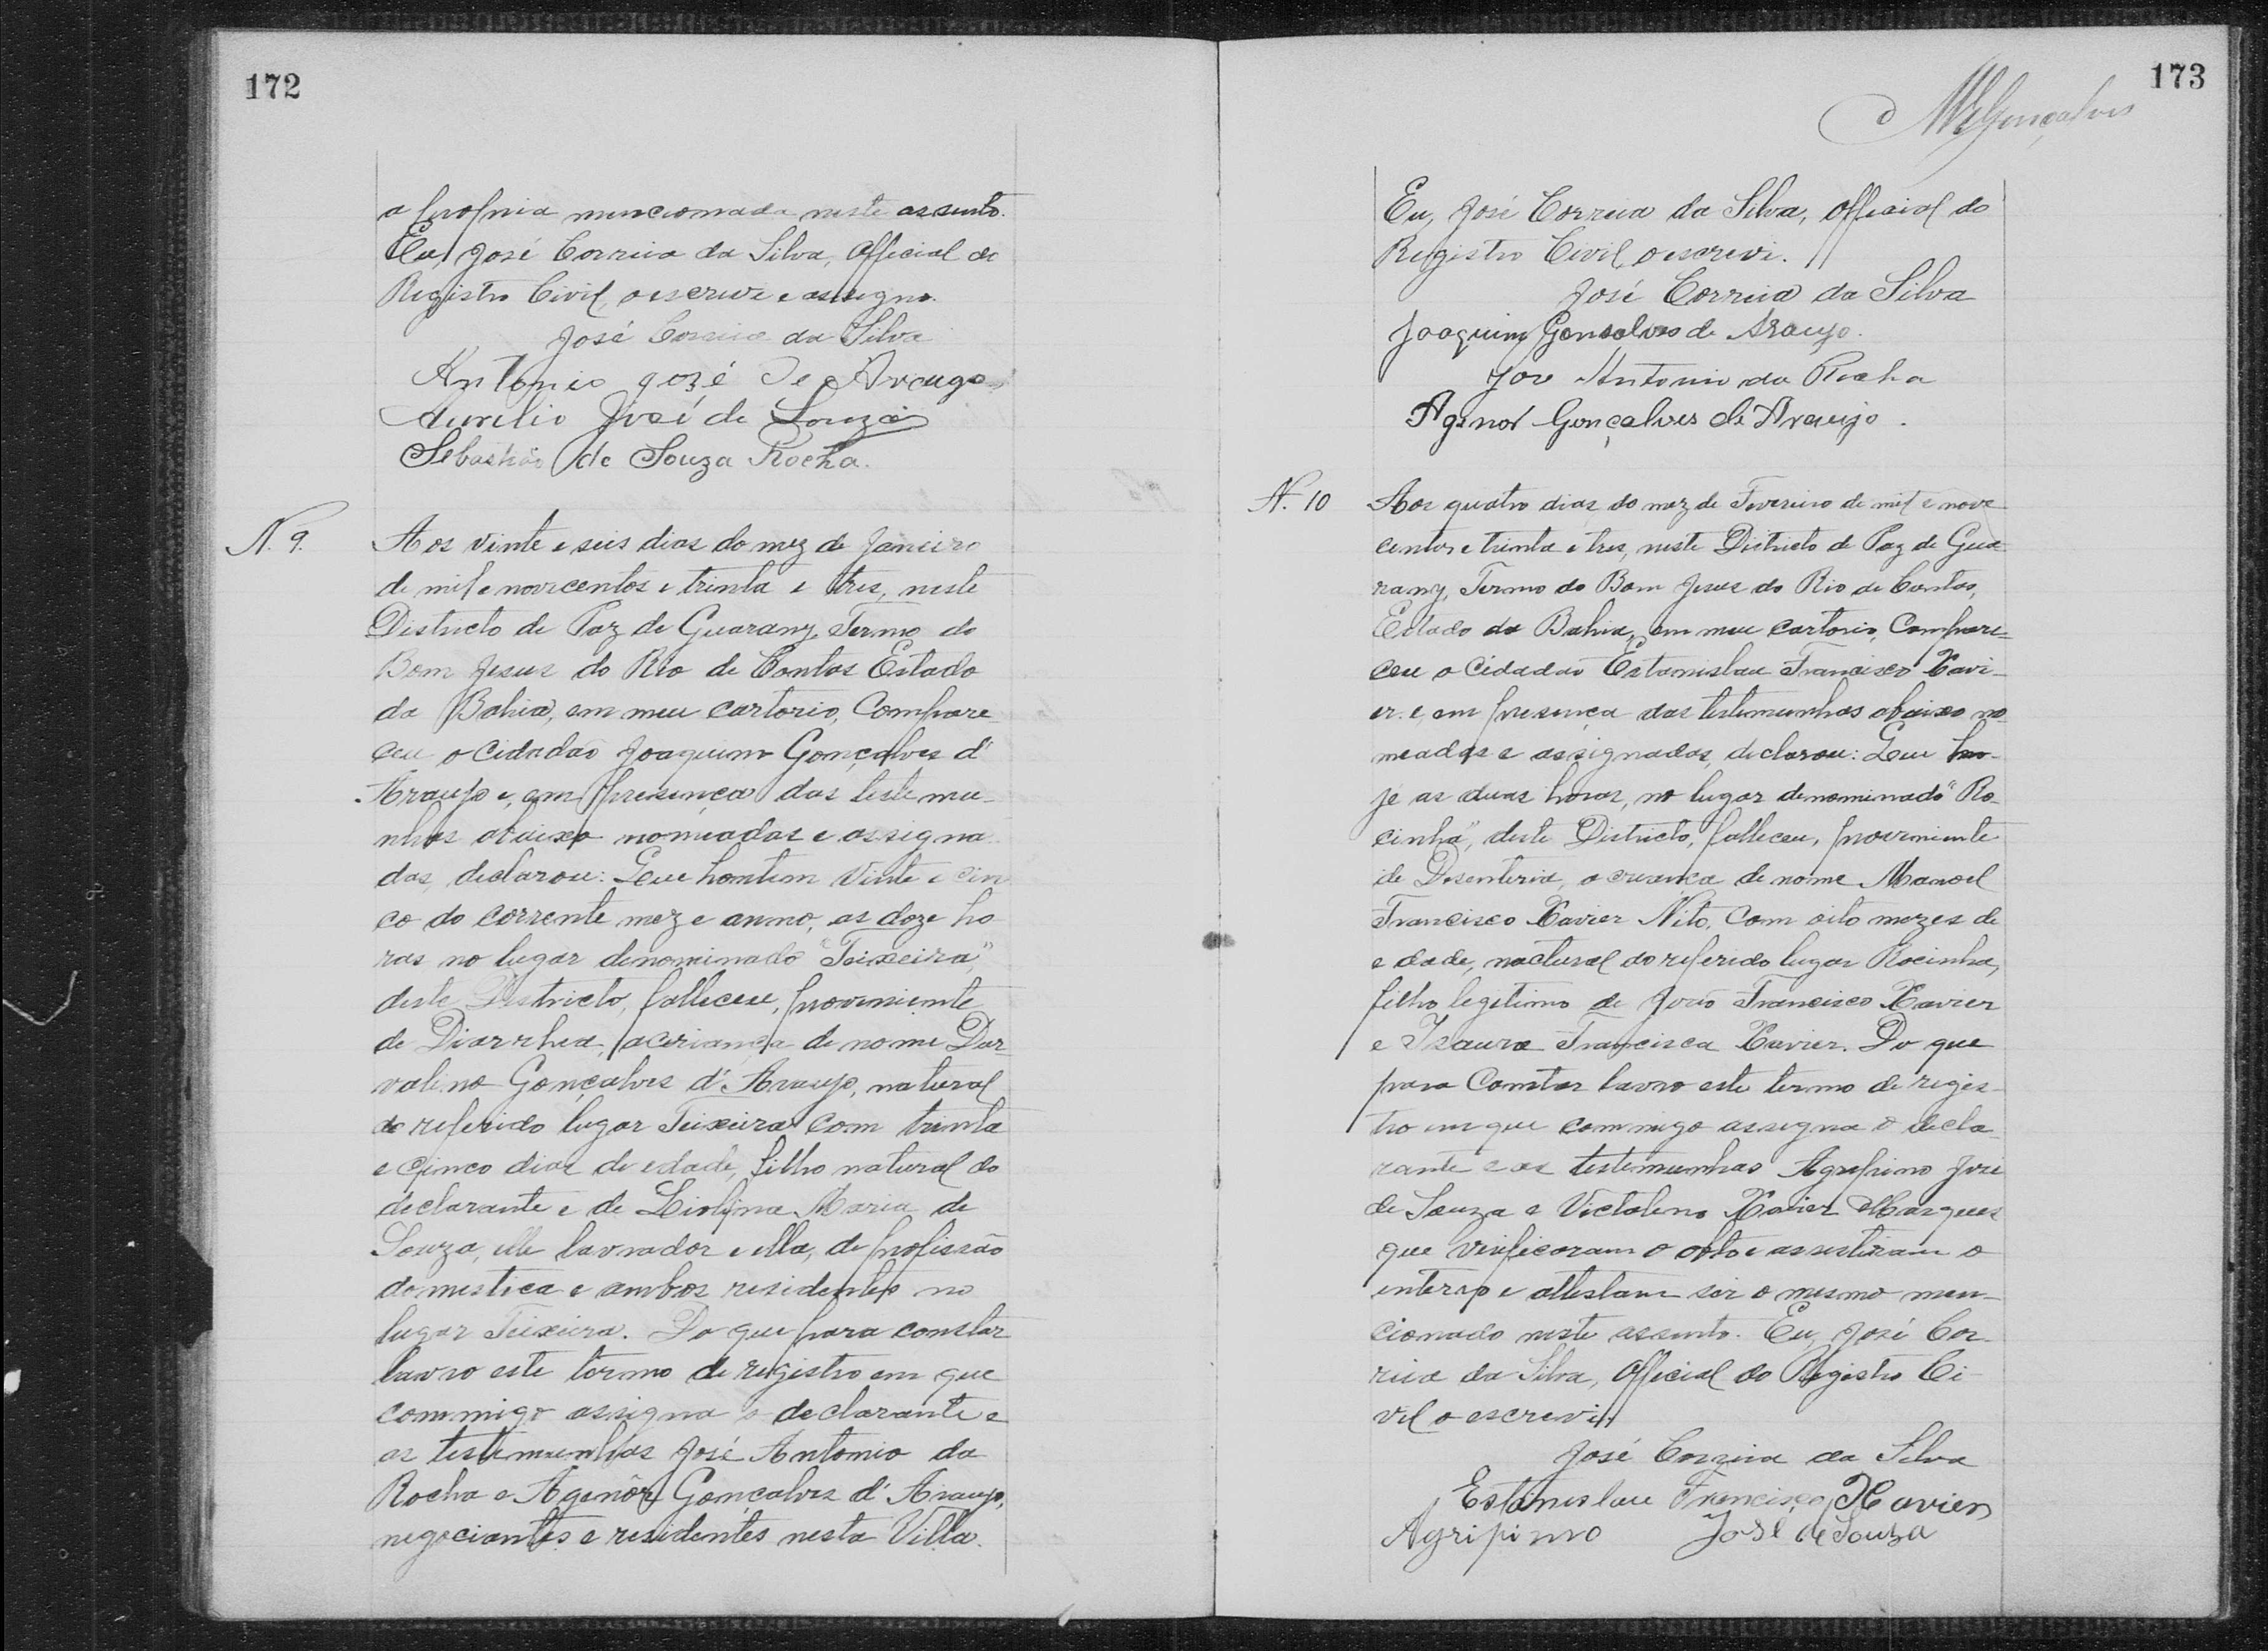 172
a propria mencionada neste assento.
Eu, José Correia da Silva, Official do
Registro Civil, o escrevi e assigno.
José Correia da Silva
Antonio José de Araugo
Aurelio José de Souza
Sebastião de Souza Rocha.
N. 9.
Aos vinte e seis dias do mez de Janeiro
de mil e novecentos e trinta e tres, neste
Districto de Paz de Guarany, Termo do
Bom Jesus do Rio de Contas Estado
da Bahia, em meu cartorio, Compare-
ceu o cidadão Joaquim Gonçalves d'
Araujo e, em presença das testemu-
nhas abaixo nomeadas e assigna-
das, declarou: Que hontem vinte e cin
co do corrente mez e anno, as doze ho
ras no lugar denominado "Teixeira",
deste Districto, falleceu, proveniente
de Diarrhea, a creança de nome Dur-
valino Gonçalves d'Araujo, natural
do referido lugar Teixeira com trinta
e cinco dias de edade, filho natural do
declarante e de Maria de
Souza, elle lavrador e ella, de profissão
domestica e ambos residentes no
lugar Teixeira. Do que para constar
lavro este termo de registro em que
commigo assigna o declarante e
as testemunhas José Antonio da
Rocha e Agenôr Gonçalves d'Araujo,
negociantes e residentes nesta Villa.
173
MGonçalves
Eu, José Correia da Silva, Official do
Registro Civil, o escrevi.
José Correia da Silva
Joaquim Gonsalves de Araujo.
Jose Antonio da Rocha
Agenor Gonçalves de Araujo.
N. 10
Aos quatro dias do mez de Fevereiro de mil e nove
centos e trinta e tres, neste Districto de Paz de Gua-
rany, Termo do Bom Jesus do Rio de Contas,
Estado da Bahia, em meu cartorio, Compare-
ceu o cidadão Estanislau Francisco Xavi-
er. e, em presença das testemunhas abaixo no-
meadas e assignados, declarou: Que ho-
je as duas horas, no lugar denominado "Ro-
cinha", deste Districto, falleceu, proveniente
de Desenteria, a creança de nome Manoel
Francisco Xavier Neto, Com oito mezes de
edade, nactural do referido lugar Rocinha,
filho legitimo de João Francisco Xavier
e Isaura Francisca Xavier. Do que
para Constar lavro este termo de regis-
tro em que commigo assigna o decla-
rante e as testemunhas Agripino José
de Souza e Victalino Xavier Marques
que verificaram o obto e assistiram o
enterro e attestam ser o mesmo men-
cionado neste assento. Eu, José Cor-
reia da Silva, Official do Registro Ci-
vil o escrevi.
José Correia da Silva
Estanislau Francisco Xavier
Agripino José de Souza